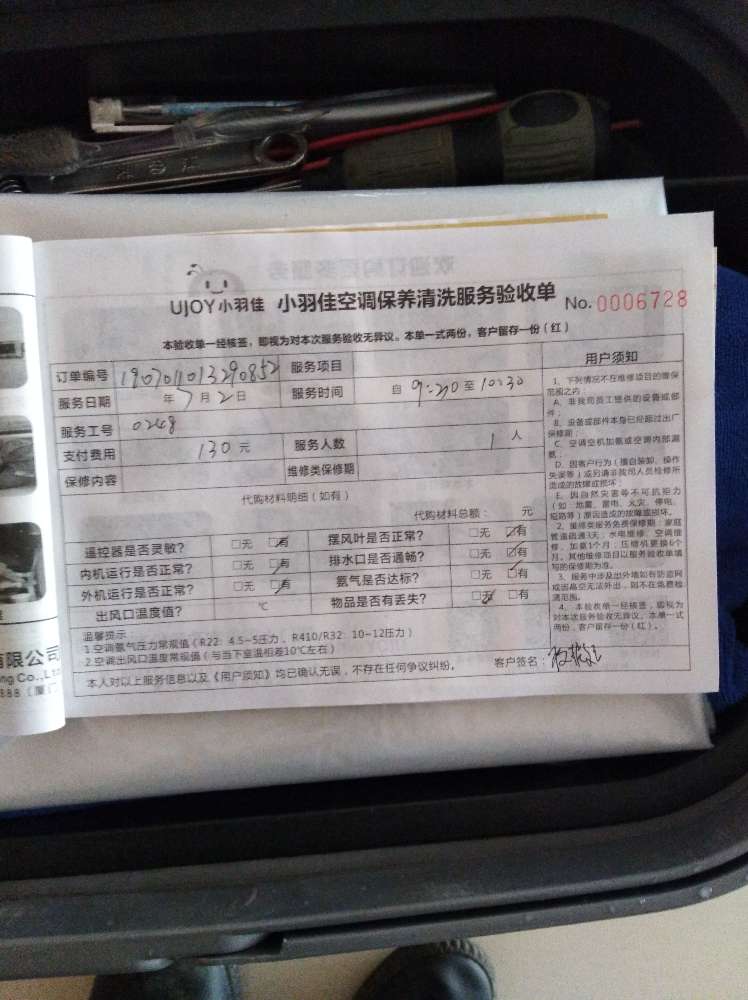 UJOY小羽佳 小羽佳空调保养清洗服务验收单 No. 0006728
本验收单一经核签，即视为对本次服务验收无异议。本单一式两份，客户留存一份（红）
订单编号 190701013290852 服务项目
服务日期 年 7 月 2 日 服务时间 自 9:20 至 10:30
服务工号 0248
支付费用 130 元 服务人数 1 人
保修内容 维修类保修期
代购材料明细（如有）
代购材料总额： 元
遥控器是否灵敏？ □无 □有 摆风叶是否正常？ □无 □有
内机运行是否正常？ □无 □有 排水口是否通畅？ □无 □有
外机运行是否正常？ □无 □有 氨气是否达标？ □无 □有
出风口温度值？ ℃ 物品是否有丢失？ □无 □有
温馨提示
1.空调氨气压力常规值（R22：4.5~5压力，R410/R32：10~12压力）
2.空调出风口温度常规值（与当下室温相差10℃左右）
本人对以上服务信息以及《用户须知》均已确认无误，不存在任何争议纠纷。 客户签名：
用户须知
1、下列情况不在维修项目的保保
范围之内：
A、非我司员工提供的设备或部
件；
B、设备或部件本身已经超过出厂
保修期；
C、空调空机加氨或空调内部漏
氨；
D、因客户行为（擅自装卸、操作
失误等）或另请非我司人员检修所
造成的故障或损坏；
E、因自然灾害等不可抗拒力
（如：地震、雷电、火灾、停电、
短路等）原因造成的故障或损坏。
2、维修类服务免费保修期：家庭
管道疏通3天；水电维修、空调维
修、加氨1个月；压缩机更换6个
月。其他维修项目以服务验收单填
写的保修期为准。
3、服务中涉及出外墙如有防盗网
或因高空无法外出，则不在免费检
清范围。
4、本验收单一经核签，即视为
对本次服务验收无异议。本单一式
两份，客户留存一份（红）。
有限公司
ng Co.,Lt
888（厦门